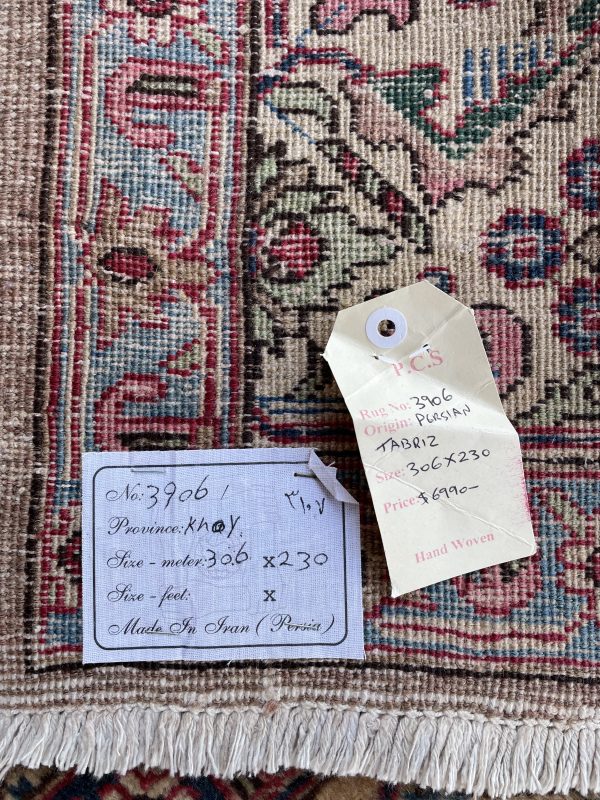 No: 3906 /
۳۱۰۷
Province: Khoy.
Size - meter: 306 x 230
Size - feet: x
Made In Iran (Persia)
P.C.S
Rug No: 3906
Origin: PERSIAN
TABRIZ
Size: 306X230
Price: $6990-
Hand Woven